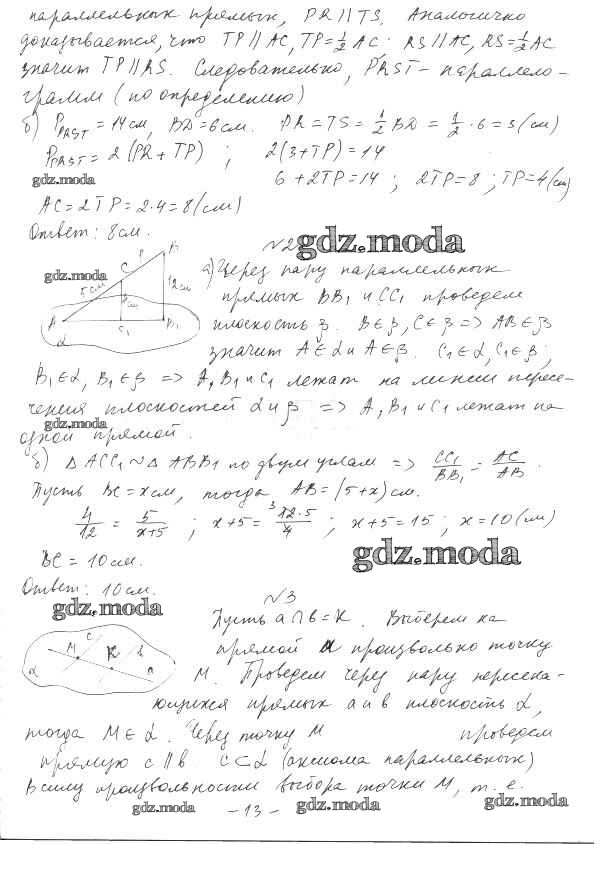 параллельных прямых, PR || TS. Аналогично
доказывается, что TP || AC, TP = 1/2 AC · RS || AC, RS = 1/2 AC
значит TP || RS. Следовательно, PRST – параллело-
грамм (по определению)
б) P_PRST = 14 см, BD = 6 см. PR = TS = 1/2 BD = 1/2 · 6 = 3 (см)
P_PRST = 2 (PR + TP) ; 2(3 + TP) = 14
gdz.moda 6 + 2TP = 14 ; 2TP = 8 ; TP = 4 (см)
AC = 2TP = 2 · 4 = 8 (см)
Ответ: 8 см.
№2 gdz.moda
gdz.moda
B
C
5 см
12 см
A
C1
B1
α
а) Через пару параллельных
прямых BB1 и CC1 проведем
плоскость β. B ∈ β, C ∈ β => AB ∈ β
значит A ∈ α и A ∈ β. C1 ∈ α, C1 ∈ β ;
B1 ∈ α, B1 ∈ β => A, B1 и C1 лежат на линии пересе-
чения плоскостей α и β => A, B1 и C1 лежат на
gdz.moda
одной прямой.
б) Δ ACC1 ~ Δ ABB1 по двум углам => CC1/BB1 = AC/AB.
Пусть BC = x см, тогда AB = (5 + x) см.
4/12 = 5/(x+5) ; x + 5 = 12·5/4 ; x + 5 = 15 ; x = 10 (см)
BC = 10 см. gdz.moda
Ответ: 10 см.
gdz.moda №3
c
M
K
b
α
a
Пусть a ∩ b = K. Выберем на
прямой a произвольно точку
M. Проведем через пару пересека-
ющихся прямых a и b плоскость α,
тогда M ∈ α. Через точку M проведем
прямую c || b. c ⊂ α (аксиома параллельных)
В силу произвольности выбора точки M, т. е.
gdz.moda – 13 – gdz.moda gdz.moda